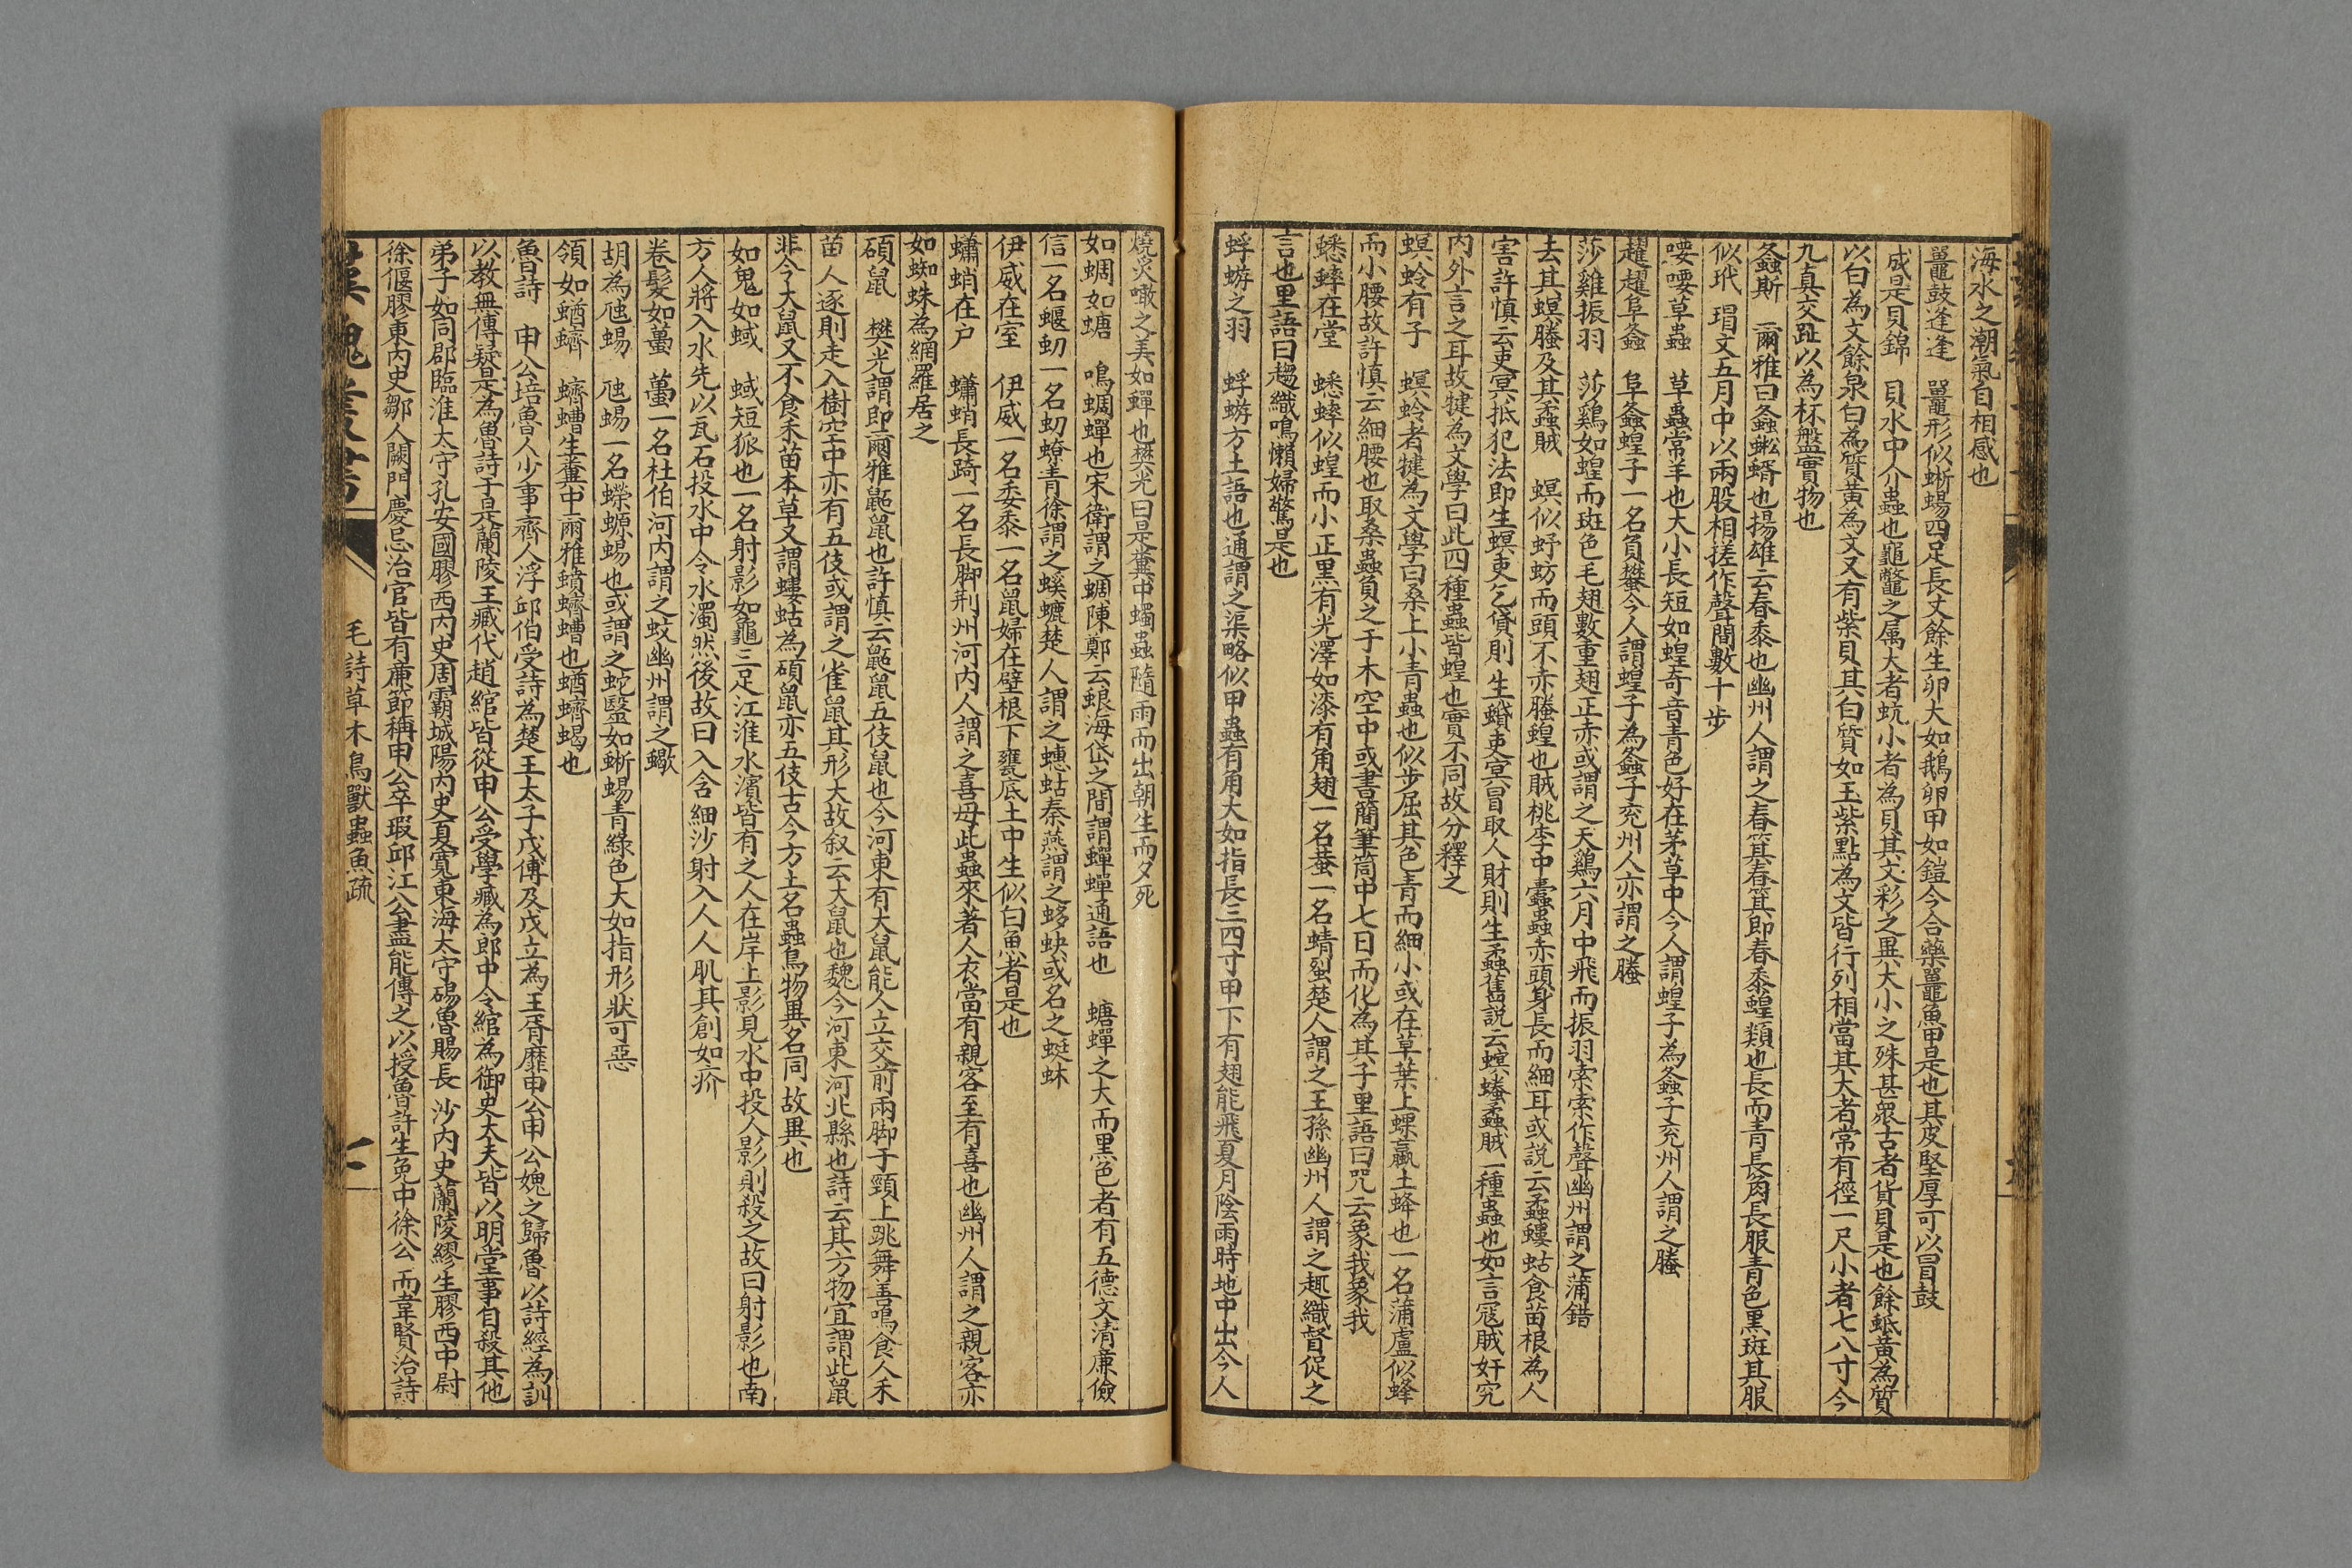 海水之潮氣自相感也
鼉鼓逢逢　鼉形似蜥蜴四足長丈餘生卵大如鵝卵甲如鎧今合藥鼉魚甲是也其皮堅厚可以冒鼓
成是貝錦　貝水中介蟲也龜鼈之属大者蚢小者為貝其文彩之異大小之殊甚衆古者貨貝是也餘蚳黃為質
以白為文餘泉白為質黃為文又有紫貝其白質如玉紫點為文皆行列相當其大者常有徑一尺小者七八寸今
九真交趾以為杯盤實物也
螽斯　爾雅曰螽蜙蝑也揚雄云舂黍也幽州人謂之舂箕舂箕即舂黍蝗類也長而青長角長股青色黑斑其股
似玳瑁文五月中以兩股相搓作聲聞數十步
喓喓草蟲　草蟲常羊也大小長短如蝗奇音青色好在茅草中今人謂蝗子為螽子兖州人謂之螣
趯趯阜螽　阜螽蝗子一名負蠜今人謂蝗子為螽子兖州人亦謂之螣
莎雞振羽　莎鷄如蝗而斑色毛翅數重翅正赤或謂之天鷄六月中飛而振羽索索作聲幽州謂之蒲錯
去其螟螣及其蟊賊　螟似虸蚄而頭不赤螣蝗也賊桃李中蠹蟲赤頭身長而細耳或説云蟊螻蛄食苗根為人
害許慎云吏冥抵犯法即生螟吏乞貸則生蟘吏冥冒取人財則生蟊舊説云螟螣蟊賊一種蟲也如言寇賊奸宄
内外言之耳故犍為文學曰此四種蟲皆蝗也實不同故分釋之
螟蛉有子　螟蛉者犍為文學曰桑上小青蟲也似步屈其色青而細小或在草葉上蜾蠃土蜂也一名蒲盧似蜂
而小腰故許慎云細腰也取桑蟲負之于木空中或書簡筆筒中七日而化為其子里語曰咒云象我象我
蟋蟀在堂　蟋蟀似蝗而小正黑有光澤如漆有角翅一名蛬一名蜻蛚楚人謂之王孫幽州人謂之趣織督促之
言也里語曰趨織鳴懶婦驚是也
蜉蝣之羽　蜉蝣方土語也通謂之渠略似甲蟲有角大如指長三四寸甲下有翅能飛夏月陰雨時地中出今人
燒炙噉之美如蟬也樊光曰是糞中蝎蟲隨雨而出朝生而夕死
如蜩如螗　鳴蜩蟬也宋衛謂之蜩陳鄭云蜋海岱之間謂蟬蟬通語也　螗蟬之大而黑色者有五德文清廉儉
信一名蝘虭一名虭蟟青徐謂之螇螰楚人謂之蟪蛄秦燕謂之蛥蚗或名之蜓蚞
伊威在室　伊威一名委黍一名鼠婦在壁根下甕底土中生似白魚者是也
蠨蛸在户　蠨蛸長踦一名長脚荆州河内人謂之喜母此蟲來著人衣當有親客至有喜也幽州人謂之親客亦
如蜘蛛為網羅居之
碩鼠　樊光謂即爾雅鼫鼠也許慎云鼫鼠五伎鼠也今河東有大鼠能人立交前兩脚于頸上跳舞善鳴食人禾
苗人逐則走入樹空中亦有五伎或謂之雀鼠其形大故叙云大鼠也魏今河東河北縣也詩云其方物宜謂此鼠
非今大鼠又不食禾苗本草又謂螻蛄為碩鼠亦五伎古今方土名蟲鳥物異名同故異也
如鬼如蜮　蜮短狐也一名射影如龜三足江淮水濱皆有之人在岸上影見水中投人影則殺之故曰射影也南
方人將入水先以瓦石投水中令水濁然後故曰入含細沙射入人人肌其創如疥
卷髮如蠆　蠆一名杜伯河内謂之蚊幽州謂之蠍
胡為虺蜴　虺蜴一名蠑螈蜴也或謂之蛇醫如蜥蜴青綠色大如指形狀可惡
領如蝤蠐　蠐螬生糞中爾雅蟦蠐螬也蝤蠐蝎也
魯詩　申公培魯人少事齊人浮邱伯受詩為楚王太子戊傅及戊立為王胥靡申公申公媿之歸魯以詩經為訓
以教無傳疑是為魯詩于是蘭陵王臧代趙綰皆從申公受學臧為郎中令綰為御史大夫皆以明堂事自殺其他
弟子如同郡臨淮太守孔安國膠西内史周霸城陽内史夏寬東海太守碭魯賜長沙内史蘭陵繆生膠西中尉
徐偃膠東内史鄒人闕門慶忌治官皆有廉節稱申公卒瑕邱江公盡能傳之以授魯許生免中徐公而韋賢治詩
漢魏叢書　毛詩草木鳥獸蟲魚疏